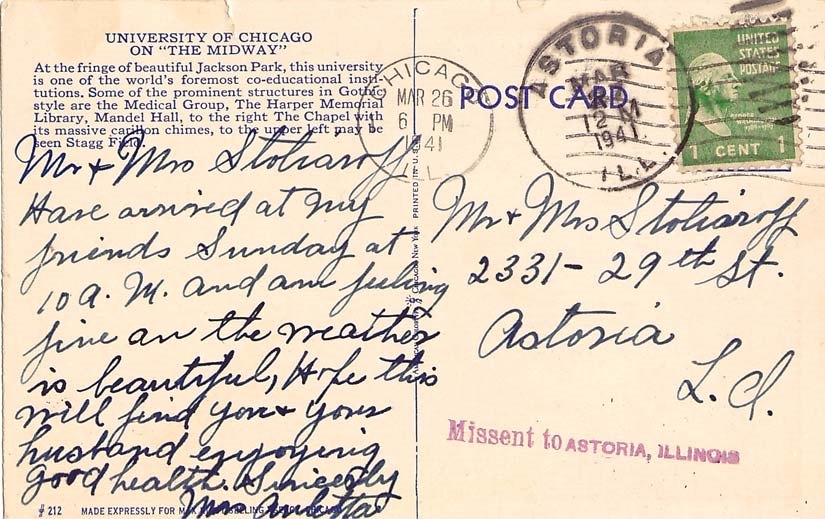 UNIVERSITY OF CHICAGO
ON "THE MIDWAY"
At the fringe of beautiful Jackson Park, this university
is one of the world's foremost co-educational insti-
tutions. Some of the prominent structures in Gothic
style are the Medical Group, The Harper Memorial
Library, Mandel Hall, to the right The Chapel with
its massive carillon chimes, to the upper left may be
seen Stagg Field.
Mr & Mrs Stoliaroff
Have arrived at my
friends Sunday at
10 A. M. and am feeling
fine an the weather
is beautiful, Hope this
will find you & your
husband enjoying
good health. Sincerely
Mrs
# 212 MADE EXPRESSLY FOR
CHICAGO
MAR 26
6 PM
1941
ILL.
PRINTED IN U. S. A.
POST CARD
ASTORIA
MAR
12 M
1941
ILL.
UNITED
STATES
POSTAGE
1 CENT 1
Mr & Mrs Stoliaroff
2331 - 29th St.
Astoria
L. I.
Missent to ASTORIA, ILLINOIS